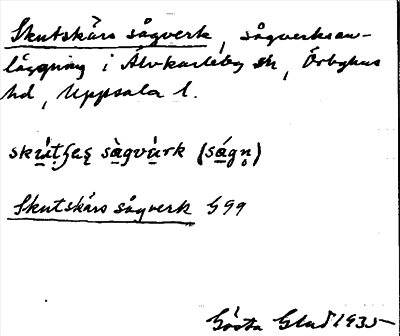 Skutskärs sågverk, sågverksan-
läggning i Älvkarleby sn, Örbyhus
hd, Uppsala l.
sågvärk (sågn)
Skutskärs sågverk G99
Gösta Glad 1935